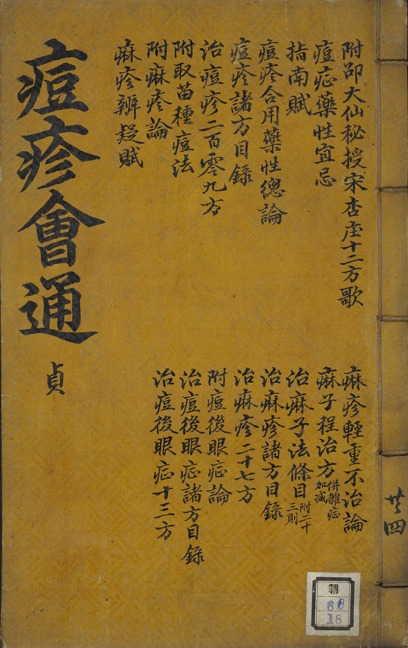 痘疹會通
貞
附卭大仙秘授宋杏庄十二方歌
痘症藥性宜忌
指南賦
痘疹合用藥性總論
痘疹諸方目錄
治痘疹二百零九方
附取苗種痘法
附痳疹論
痳疹辨疑賦
痳疹輕重不治論
痳子程治方 併雜症加減
治痳子法條目 附二十三則
治痳疹諸方目錄
治痳疹二十七方
附痘後眼症論
治痘後眼症諸方目錄
治痘後眼症十三方
廿四
朝
18